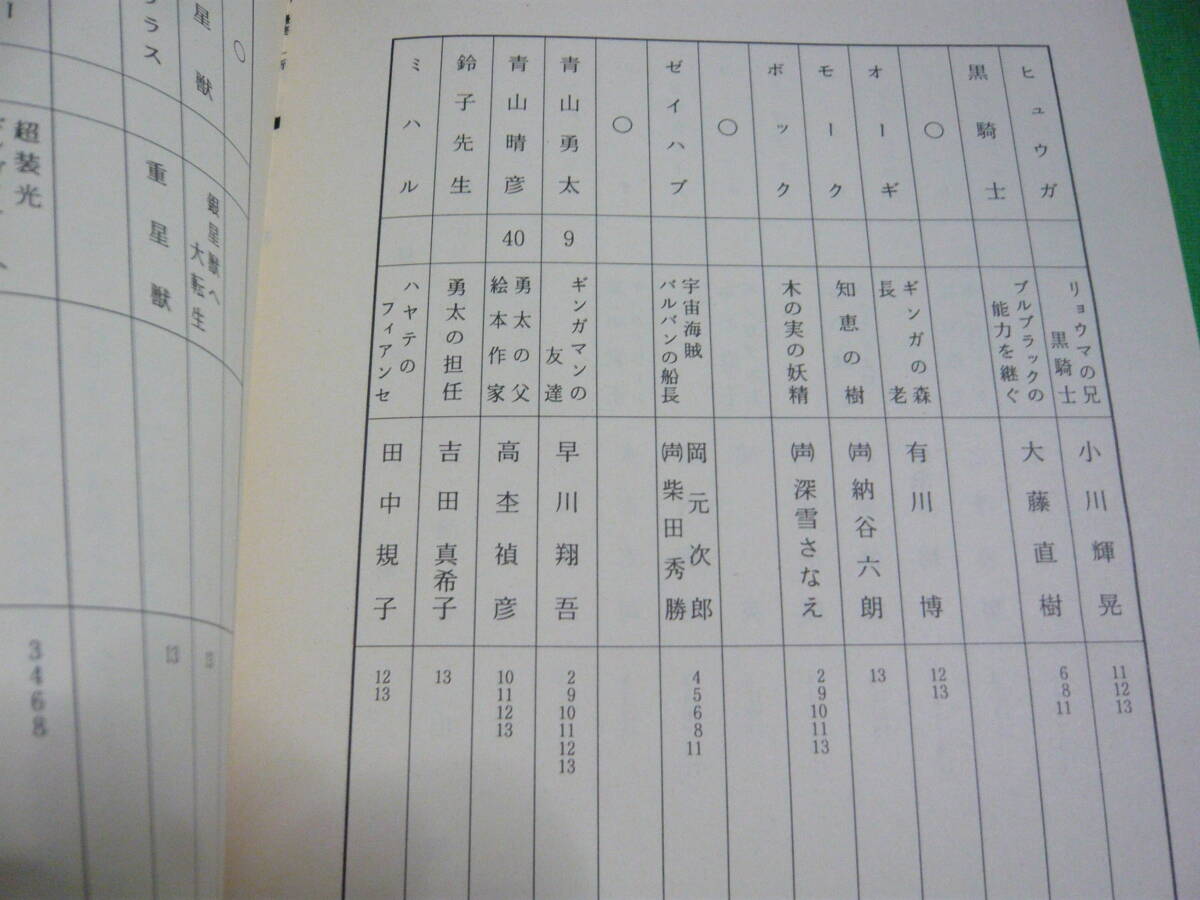 ヒュウガ
リョウマの兄
黒騎士
小川輝晃
11
12
13
黒騎士
ブルブラックの
能力を継ぐ
大藤直樹
6
8
11
○
オーギ
ギンガの森
長老
有川博
12
13
モーク
知恵の樹
㈹納谷六朗
13
ボック
木の実の妖精
(声)深雪さなえ
2
9
10
11
13
○
ゼイハブ
宇宙海賊
バルバンの船長
岡元次郎
(声)柴田秀勝
4
5
6
8
11
○
青山勇太
9
ギンガマンの
友達
早川翔吾
2
9
10
11
12
13
青山晴彦
40
勇太の父
絵本作家
高杢禎彦
10
11
12
13
鈴子先生
勇太の担任
吉田真希子
13
ミハル
ハヤテの
フィアンセ
田中規子
12
13
○
星獣
銀星獣へ
大転生
13
ラス
重星獣
13
超装光
3
4
6
8